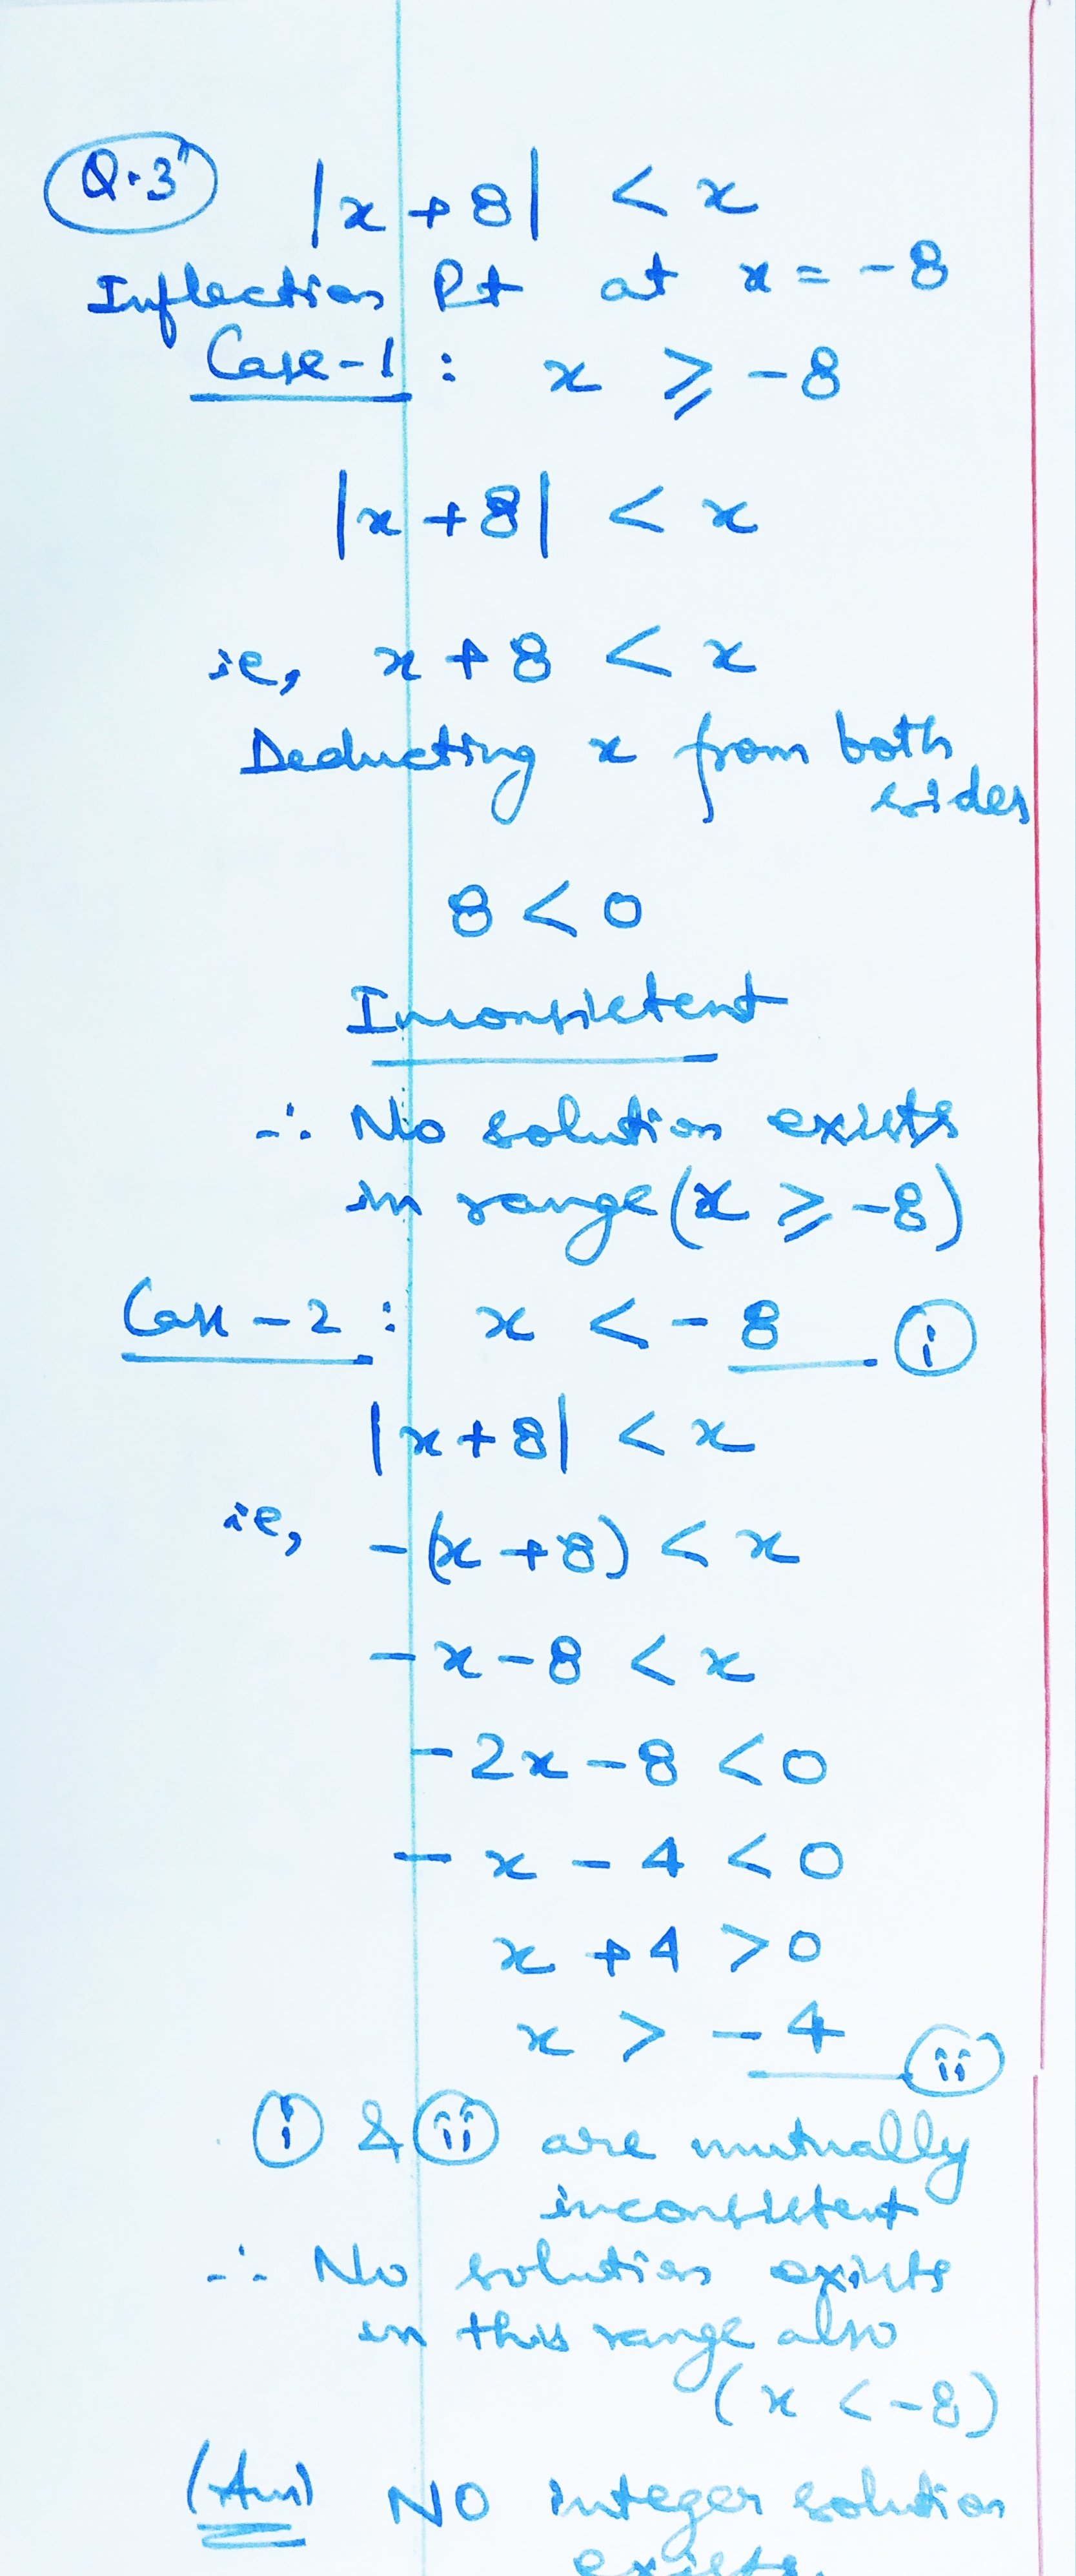 Q.3 |x + 8| < x
Inflection Pt at x = -8
Case-1 : x ⩾ -8
|x + 8| < x
ie, x + 8 < x
Deducting x from both
sides
8 < 0
Inconsistent
∴ No solution exists
in range (x ⩾ -8)
Case-2 : x < -8 (i)
|x + 8| < x
ie, -(x + 8) < x
-x - 8 < x
-2x - 8 < 0
-x - 4 < 0
x + 4 > 0
x > -4 (ii)
(i) & (ii) are mutually
inconsistent
∴ No solution exists
in this range also
(x < -8)
(Ans) NO integer solution
exists.